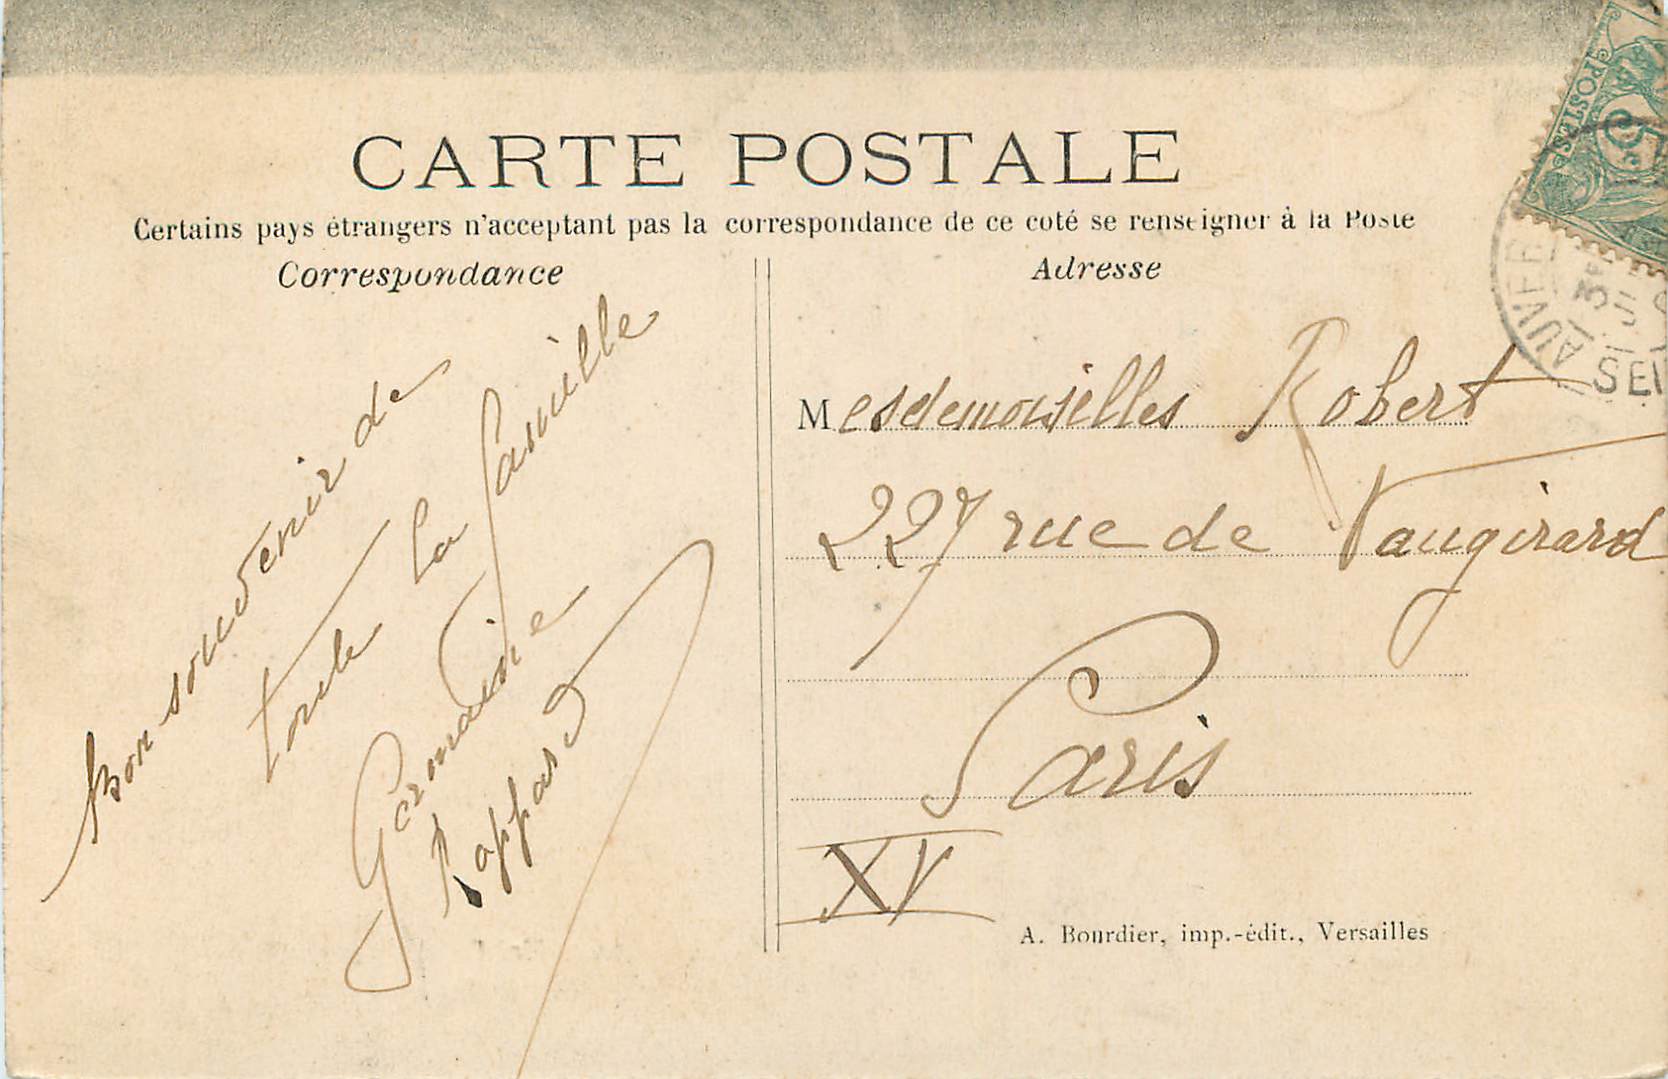 CARTE POSTALE
Certains pays étrangers n'acceptant pas la correspondance de ce coté se renseigner à la Poste
Correspondance
Bon souvenir de
toute la famille
Germaine
Rappard
Adresse
Mesdemoiselles Robert
227 rue de Vaugirard
Paris
XV
A. Bourdier, imp.-édit., Versailles
POSTES
5c
AUVER
3E
SEI